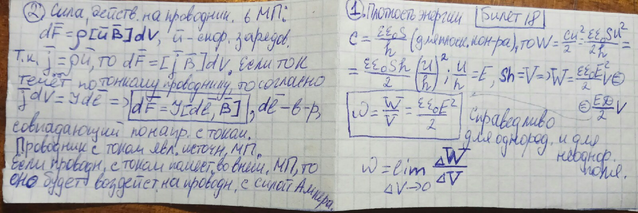 ② Сила, действ. на проводник. в МП:
dF̅ = ρ[u̅B̅]dV, u̅-скор. зарядов.
Т.к. j̅=ρu̅, то dF̅=[j̅B̅]dV. Если ток
течёт по тонкому проводнику, то согласно
j̅dV=Jdℓ̅ => dF̅=J[dℓ̅, B̅], dℓ̅-в-р,
совпадающий по напр. с током.
Проводник с током явл. источн. МП.
Если проводн. с током помест. во внеш. МП, то
оно будет воздейст. на проводн. с силой Ампера.
① Плотность энергии Билет 18
C = εε₀S/h (для плоск. кон-ра), то W = CU²/2 = εε₀SU²/2h =
= εε₀Sh/2 (U/h)²; U/h = E, Sh=V => W = εε₀E²/2 V ⊜
ω = W/V = εε₀E²/2 ⊜ ED/2 V
Справедливо
для однород. и для
неоднор.
поля.
ω = lim ΔW/ΔV
ΔV→0